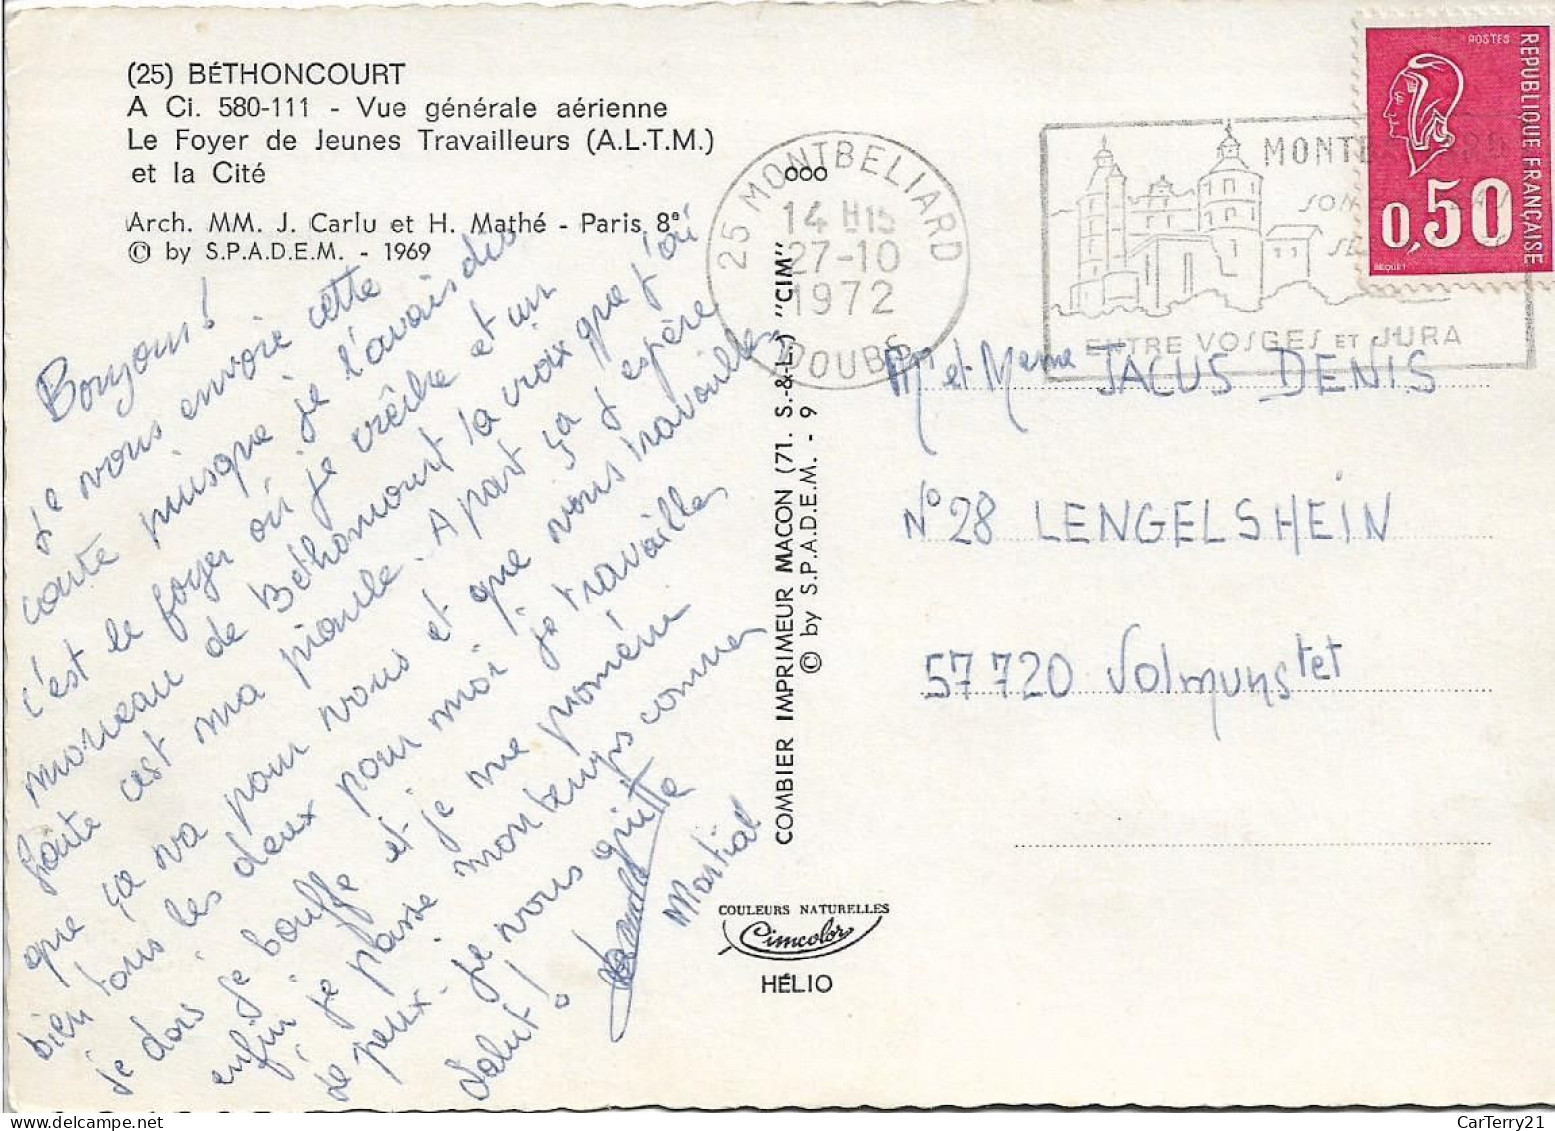 (25) BÉTHONCOURT
A Ci. 580-111 - Vue générale aérienne
Le Foyer de Jeunes Travailleurs (A.L.T.M.)
et la Cité
Arch. MM. J. Carlu et H. Mathé - Paris 8e
© by S.P.A.D.E.M. - 1969
Bonjour !
Je vous envoie cette
carte puisque je l'avais dis
c'est le foyer où je crèche et un
morceau de Béthoncourt la croix que j'ai
faite c'est ma piaule. A part ça j'espère
que ça va pour vous et que vous travailler
bien tous les deux pour moi je travailler
je dors je bouffe et je me promène
enfin je passe mon temps comme
je peux. Je vous quitte
Salut !
Martial
COMBIER IMPRIMEUR MACON (71. S.-&-L.) "CIM"
© by S.P.A.D.E.M. - 9
COULEURS NATURELLES
Cimcolor
HÉLIO
25 MONTBELIARD
14 H15
27-10
1972
DOUBS
MONTBELIARD
SON
ENTRE VOSGES ET JURA
POSTES
REPUBLIQUE FRANÇAISE
0,50
BEQUET
M et Meme JACUS DENIS
N° 28 LENGELSHEIN
57720 Volmunstet
CarTerry21